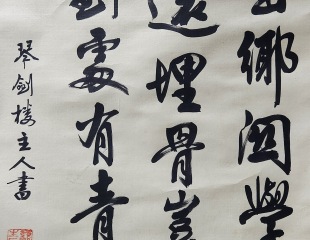 鄉関學
還埋骨豈
到處有青
琴劍樓主人書